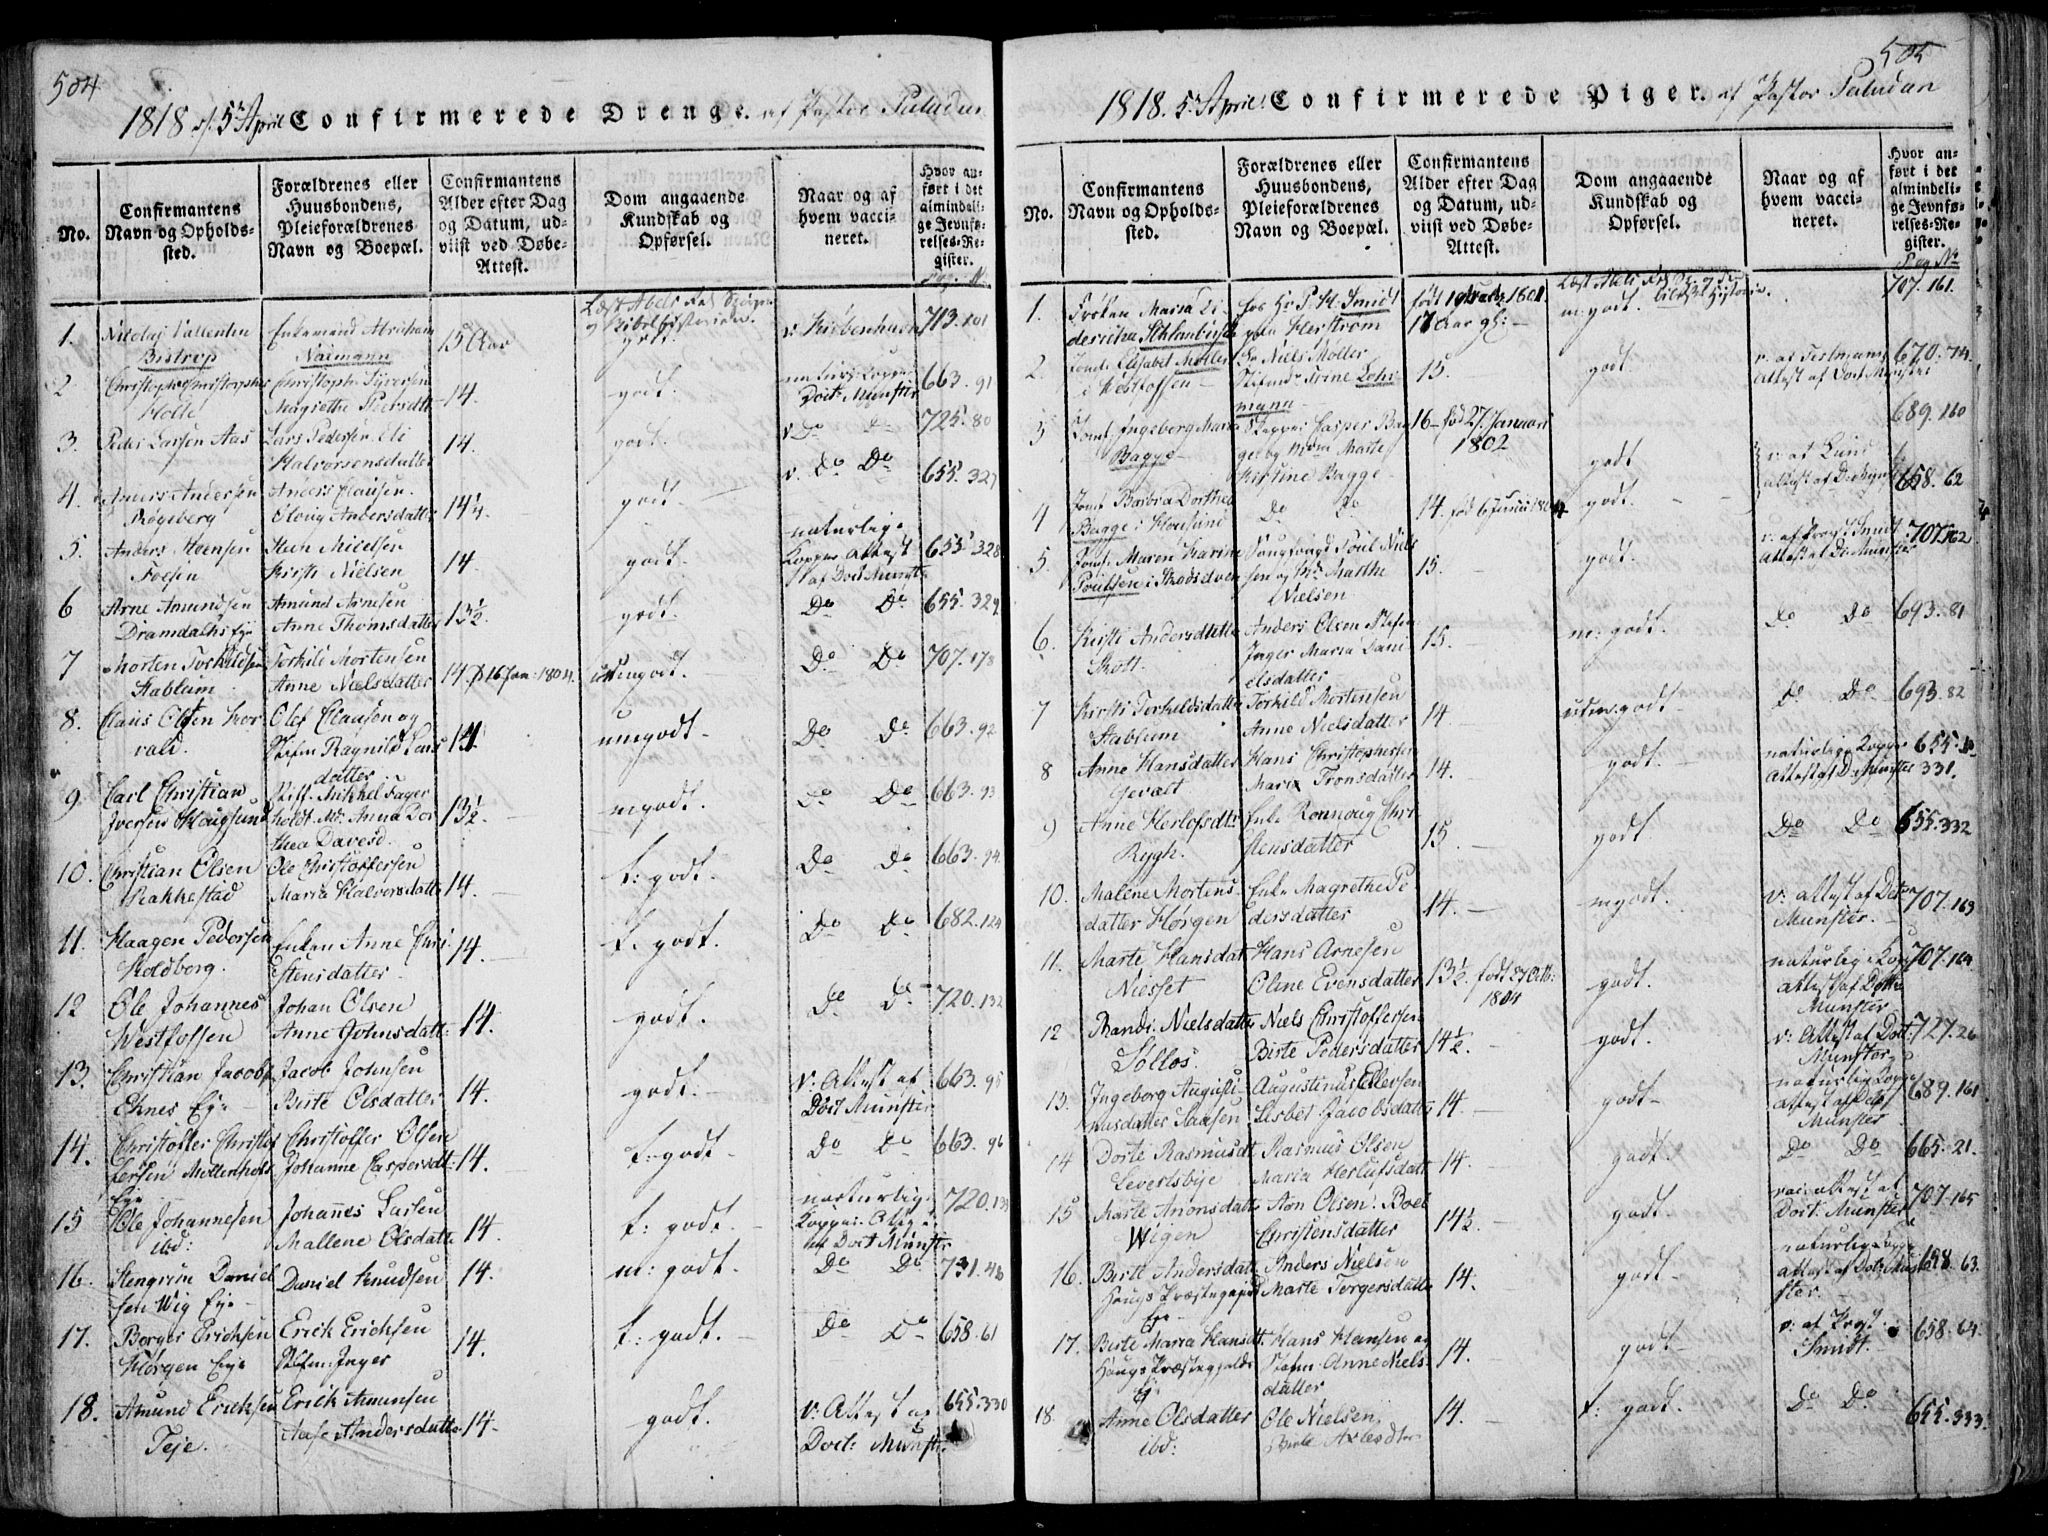 504
1818 d. 5te April Confirmerede Drenge. af Pastor Paludan
No.
Confirmantens Navn og Opholdssted.
Forældrenes eller Huusbondens, Pleieforældrenes Navn og Boepæl.
Confirmantens Alder efter Dag og Datum, udviist ved Døbe-Attest.
Dom angaaende Kundskab og Opførsel.
Naar og af hvem vaccineret.
Hvor anført i det almindelige Jevnførelses-Register.
Pag. N.
1. Nicolaj Vallentin Enkemand Abraham 15 Aar godt. v. Kiøbenhavn 713.101
Bistrup Naimann
2 Holte Christoph: Syversen 14. godt. 663.91
Magrethe Doct: Munster
3. Peder Larsen Aas Lars Pedersen 14. godt. v. Do Do 725.80
Halvorsensdatter
4. Anders Andersen Anders Clausen 14½ godt v. Do Do 655.327
Røgeberg Andersdatter
5. Anders Steensen Steen Nielsen 14. godt. naturlige Kopper Attest af Doct Munster 655.328
Kirsti Nielsen
6 Arne Amundsen Amund Arnesen 13½ godt. Do Do 655.329
Dramdahls Eye Anne Thomsdatter
7 Morten Torkildsen Torkild Mortensen 14. f. 16 Jan: 1804. godt. Do Do 707.178
Stablum Anne Nielsdatter
8. Claus Olsen Olef Clausen og 14. godt. Do Do 663.92
Stefm Ragnild Lars
datter
9. Carl Christian Stiff. Mikkel Fager 13½. mgodt. Do Do 663.93
Iversen Hougsund holdt Mr. Anna Dor
thea Davesd.
10. Christian Olsen Ole Christoffersen 14. t: godt. Do Do 663.94
Rakkestad Maria Halvorsdatter
11. Haagen Pedersen Enken Anne Chri 14. t. godt. Do Do 682.124
Koldberg. stensdatter
12 Ole Johannes Johan Olsen 14. godt. Do Do 720.132
Westfossen Anne Johnsdatt:
13. Christian Jacobs Jacob Johnsen 14. godt. v: Attest af 663.95
Ehnes Eye Birte Olsdatter Doct Munster
14. Christoffer Christof Christoffer Olsen 14. t: godt. Do Do 663.96
fersen Møllenhofs Johanne Caspersdt:
Eye
15 Ole Johannesen Johannes Larsen 14. t: godt. naturlige 720.133
ibd: Mallene Olsdatt: Kopper. Attest af Doct Munster
16. Stengrim Daniel Daniel Knudsen 14. m: godt. Do Do 731.46
sen Wig Eye
17. Borger Erichsen Erick Erichsen 14. t: godt. Do Do 658.61
Hørgen Eye Stefm: Inger
18. Amund Erichsen Erick Amunsen 14. godt. v: Attest af 655.330
Teje. Aase Andersdatter Doct: Munster
505
1818. 5te April Confirmerede Piger. af Pastor Paludan
No.
Confirmantens Navn og Opholdssted.
Forældrenes eller Huusbondens, Pleieforældrenes Navn og Boepæl.
Confirmantens Alder efter Dag og Datum, udviist ved Døbe-Attest.
Dom angaaende Kundskab og Opførsel.
Naar og af hvem vaccineret.
Hvor anført i det almindelige Jevnførelses-Register.
Pag No
1. Frøken Maria Di hos Hr P. H. Smidt født 1801 m: godt. 707.161
dericha paa Kerstrøm 17 Aar
2. Jomf: Elisabet Møller Hr Niels Møller 15. godt. 670.74
i Westfossen Stefmdr Trine Lohr Attest af Doct Munster
mann
3 Jomf: Ingeborg Marie Skipper Casper Bag 16 fød 27 Januari godt v: af Lund 689.160
Bagge ge og Marte 1802 Attest af
Kirstine Bagge
4 Jomf Barbra Dorthea Do Do 14. fød 6 Junii 1804 godt. 658.62
Bagge i Hougsund
5. Jomf: Maren Karine Sougfougd Poul Niels 15. godt. v. af Prost Smidt 707.162
Poulsen i Skodselven sen og Marthe Attest af Munster
Nielsen
6. Kirsti Andersdatter Anders Olsen Stefm 15. m: godt. Do Do 693.81
Skott. Inger Maria Dani
elsdatter
7 Kirsti Torkildsdatter Torkild Mortensen 14. godt Do Do 693.82
Stablum Anne Nielsdatter
8 Anne Hansdatter Hans Christophersen 14. godt. naturlige Kopper 655.
Gevalt Maria Tronsdatter Attest af Dr Munster 331.
9 Anne Herlofsdtr Enke Ronnoug Chri 15. godt Do Do 655.332
Rygh. stensdatter
10. Malene Mortens Enke Magrethe Pe 14. mgodt. v: attest af Doct 707.163
datter Hørgen dersdatter Munster.
11. Marte Hansdat Hans Arnesen 13½. født 29 Octb: godt. naturlige Kop 707.164
Niesset Oline Evensdatter 1804 attest af Doct Munster
12 Randi: Nielsdatter Niels Christoffersen 14½. godt. v: Attest af Doct: 727.26
Sollos Birte Pedersdatter Munster
13. Ingeborg Augusti Augustinus Ellersen 14. godt. naturlige Kopper 689.161
nusdatter Aaesen Lisbet Jacobsdatter attest af Doct Munster
14 Dorte Rasmusdt Rasmus Olsen 14. godt. Do Do 665.21.
Leverlsbye Maria Herlufsdatt
15 Marte Aronsdatt Aron Olsen. Boel 14½. godt. vac. attest af 707.165
Wigen Christensdatter Doct: Munster
16. Birte Andersdatt Anders Nielsen 14. godt. naturlig Kopp 658.63.
Hougs Præstegaard Marte Torgersdatter attest af Doct Munster.
Eye
17. Birte Maria Hansdt. Hans Hansen og 14. godt. v: af Prost 658.64.
Hougs Præstegjelds Stefm: Anne Niels Smidt.
Ey datter
18. Anne Olsdatter Ole Nielsen 14. t: godt. Do Do 655.333.
ibd: Birte Axlesdtr